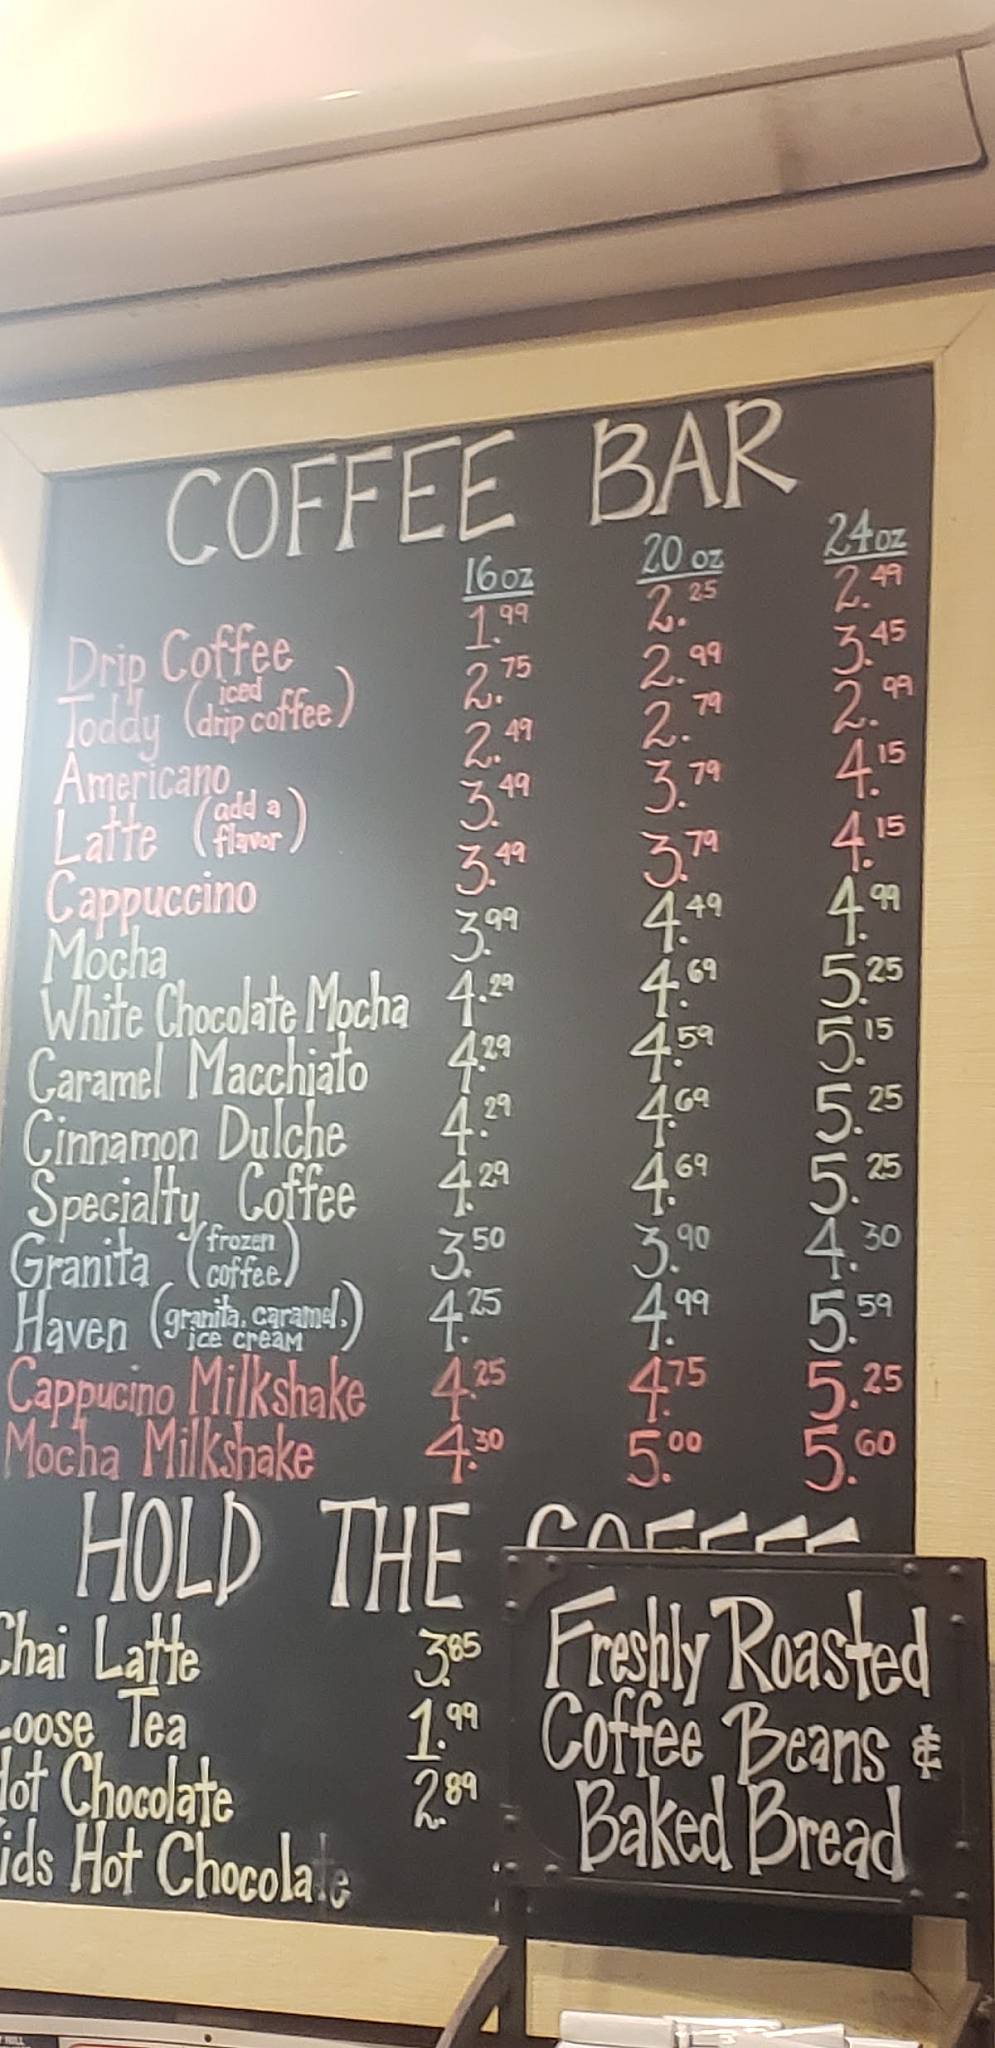 COFFEE BAR
16oz 20 oz 24oz
Drip Coffee 1.99 2.25 2.49
Toddy (iced drip coffee) 2.75 2.99 3.45
Americano 2.49 2.79 2.99
Latte (add a flavor) 3.49 3.79 4.15
Cappuccino 3.49 3.79 4.15
Mocha 3.99 4.49 4.99
White Chocolate Mocha 4.29 4.69 5.25
Caramel Macchiato 4.29 4.59 5.15
Cinnamon Dulche 4.29 4.69 5.25
Specialty Coffee 4.29 4.69 5.25
Granita (frozen coffee) 3.50 3.90 4.30
Haven (granita, caramel, ice cream) 4.25 4.99 5.59
Cappucino Milkshake 4.25 4.75 5.25
Mocha Milkshake 4.30 5.00 5.60
HOLD THE COFFEE
Chai Latte 3.85
Loose Tea 1.99
Hot Chocolate 2.89
ids Hot Chocolate
Freshly Roasted
Coffee Beans &
Baked Bread